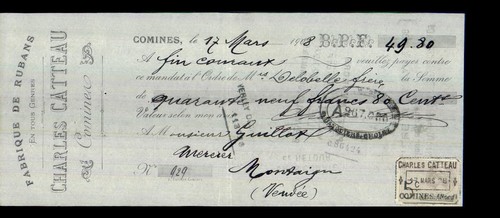 FABRIQUE DE RUBANS
EN TOUS GENRES
CHARLES CATTEAU
Comines
COMINES, le 17 Mars 1908 B.P.F. 49.80
A fin courant veuillez payer contre
ce mandat à l'Ordre de M. Delobelle frère, la Somme
de quarante neuf francs 80 Cent.
Valeur selon mon
A Monsieur Guillot
Mercier
N° 929 Montaigu
(Vendée)
CHARLES CATTEAU
17 MARS
5c
COMINES (Nord)